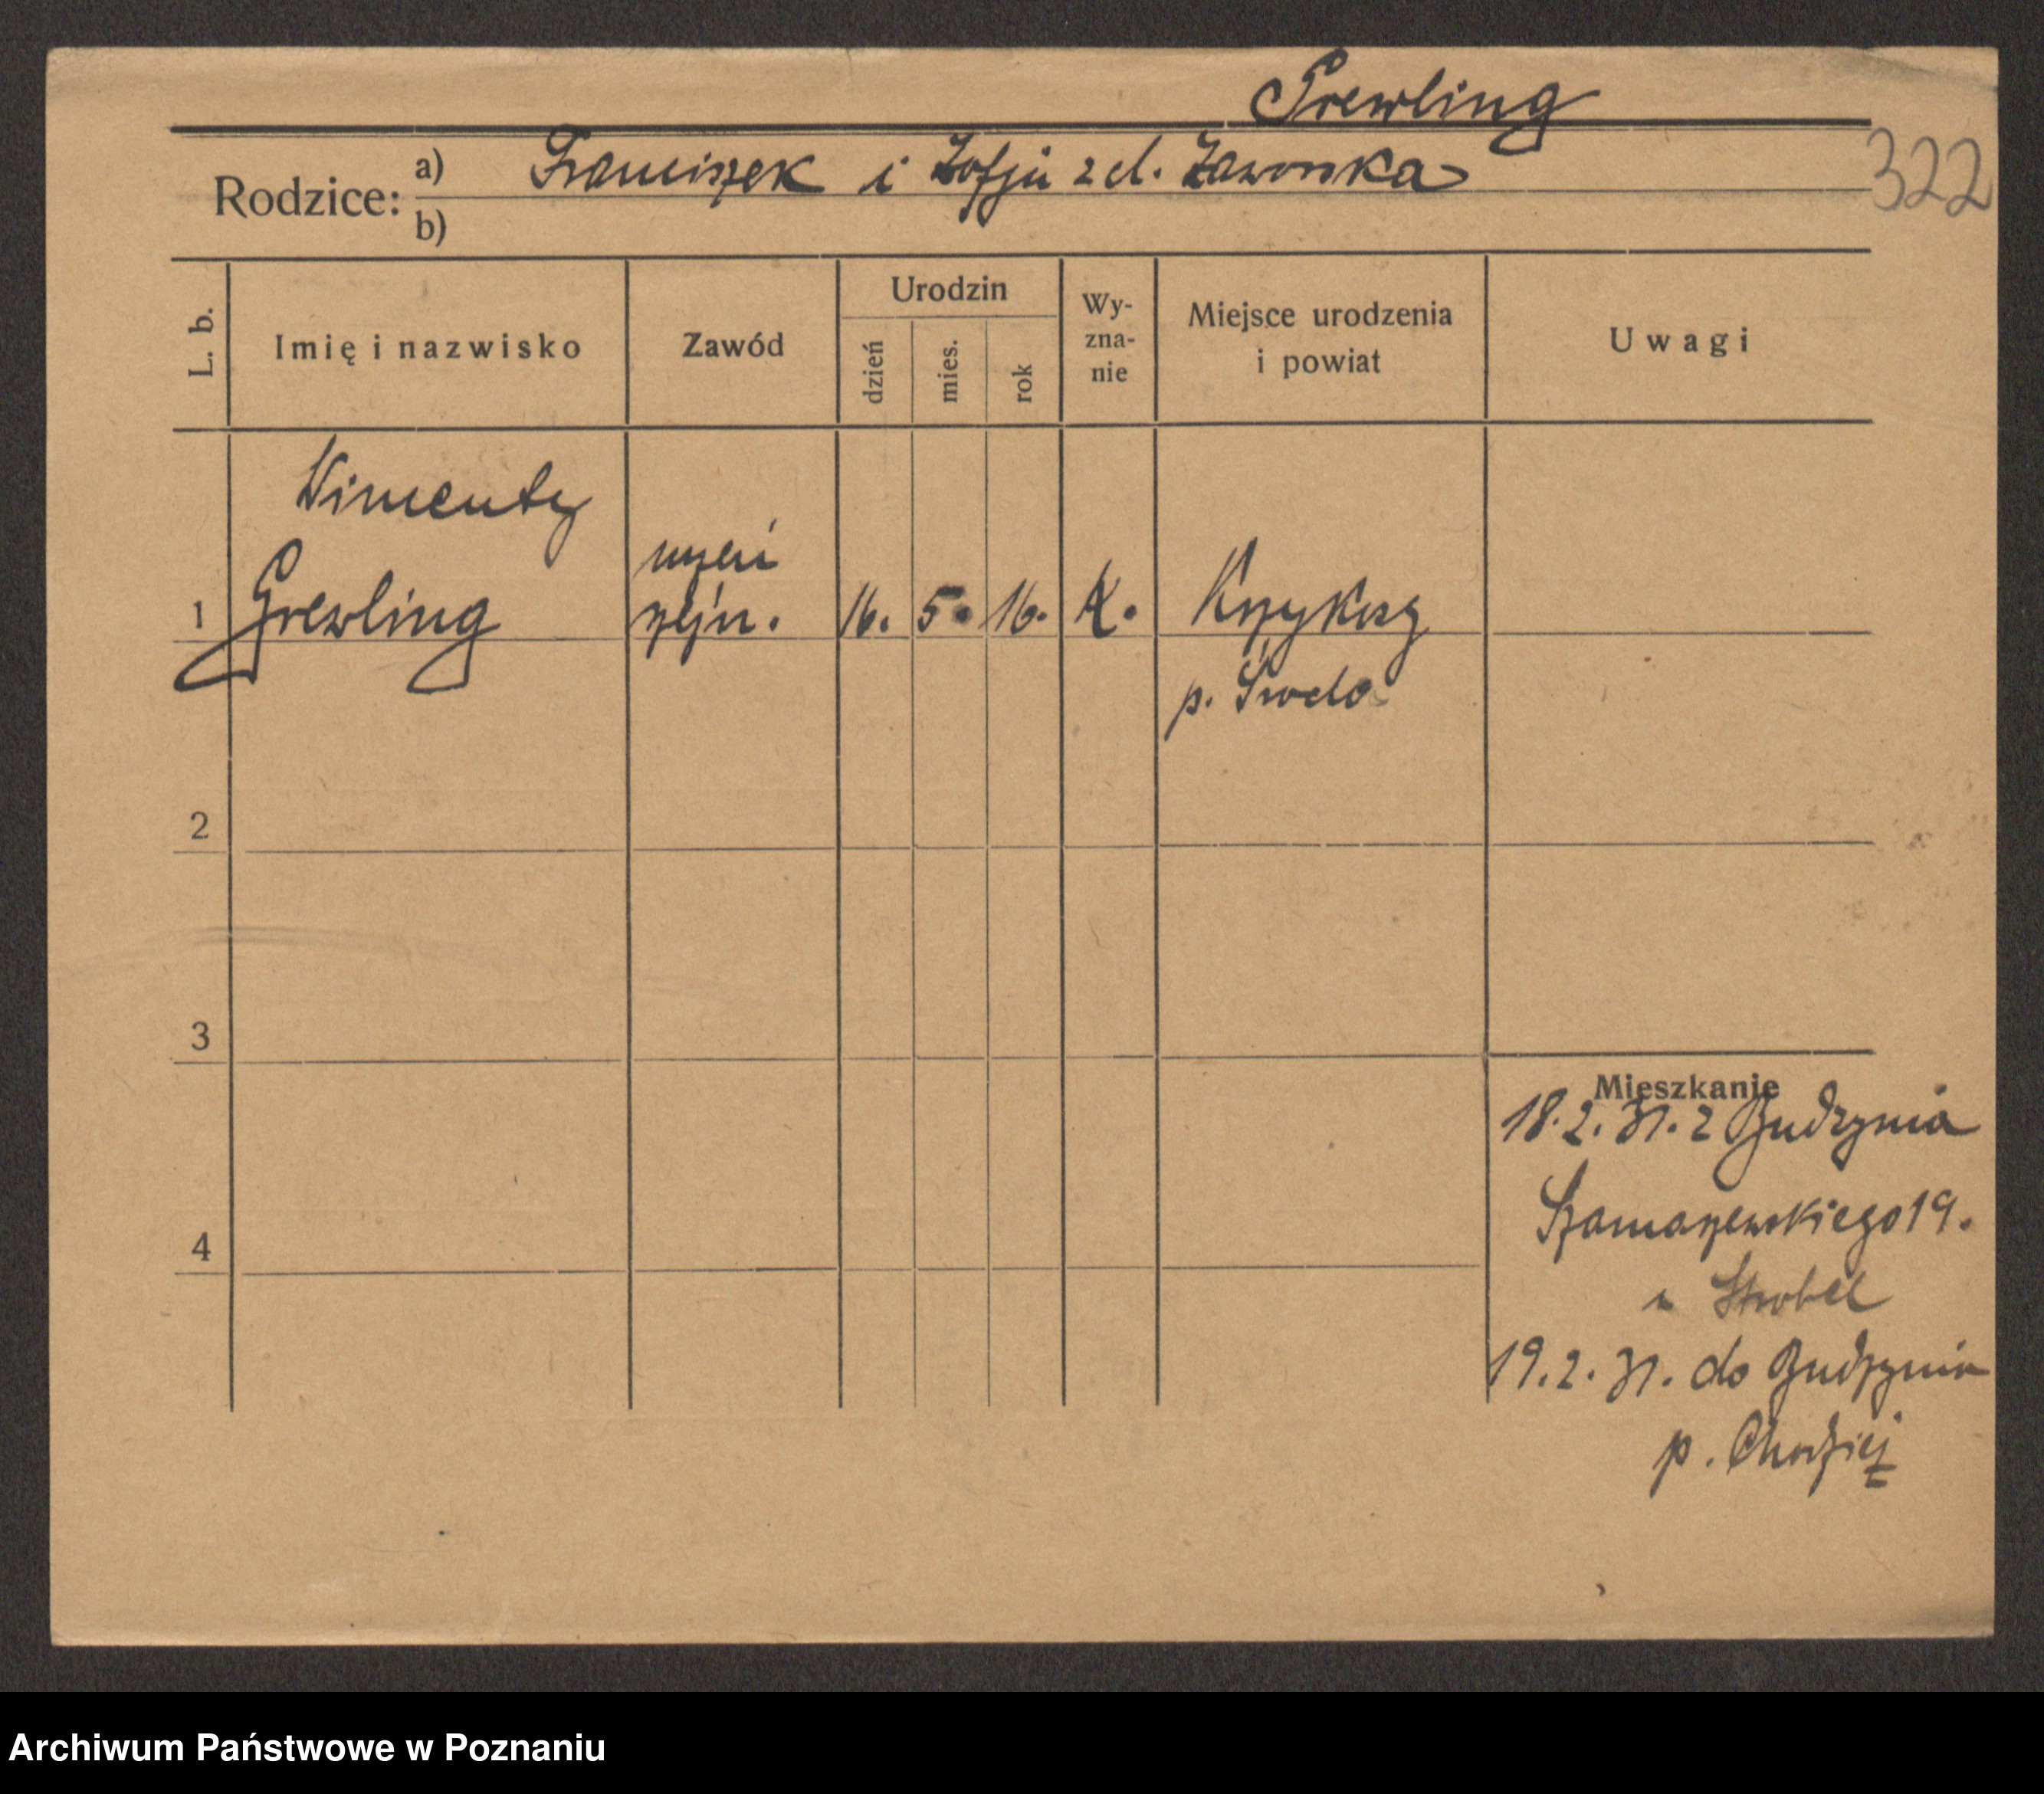 Grewling
322
Rodzice: a) Franciszek i Zofja z d. Zaworska
b)
L. b. Imię i nazwisko Zawód Urodzin dzień mies. rok Wy-zna-nie Miejsce urodzenia i powiat Uwagi
Wincenty
uczeń
1 Grewling rzeźn. 16. 5. 16. K. Krzykosy
p. Środa
2
3
Mieszkanie
18.2.31. z Budzynia
Szamarzewskiego 19.
4
u Strobel
19.2.31. do Budzynia
p. Chodzież
Archiwum Państwowe w Poznaniu